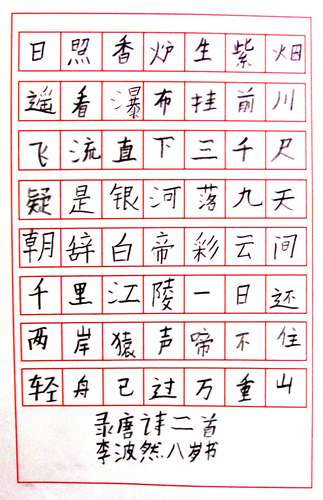 日照香炉生紫烟
遥看瀑布挂前川
飞流直下三千尺
疑是银河落九天
朝辞白帝彩云间
千里江陵一日还
两岸猿声啼不住
轻舟已过万重山
录唐诗二首
李波然.八岁书